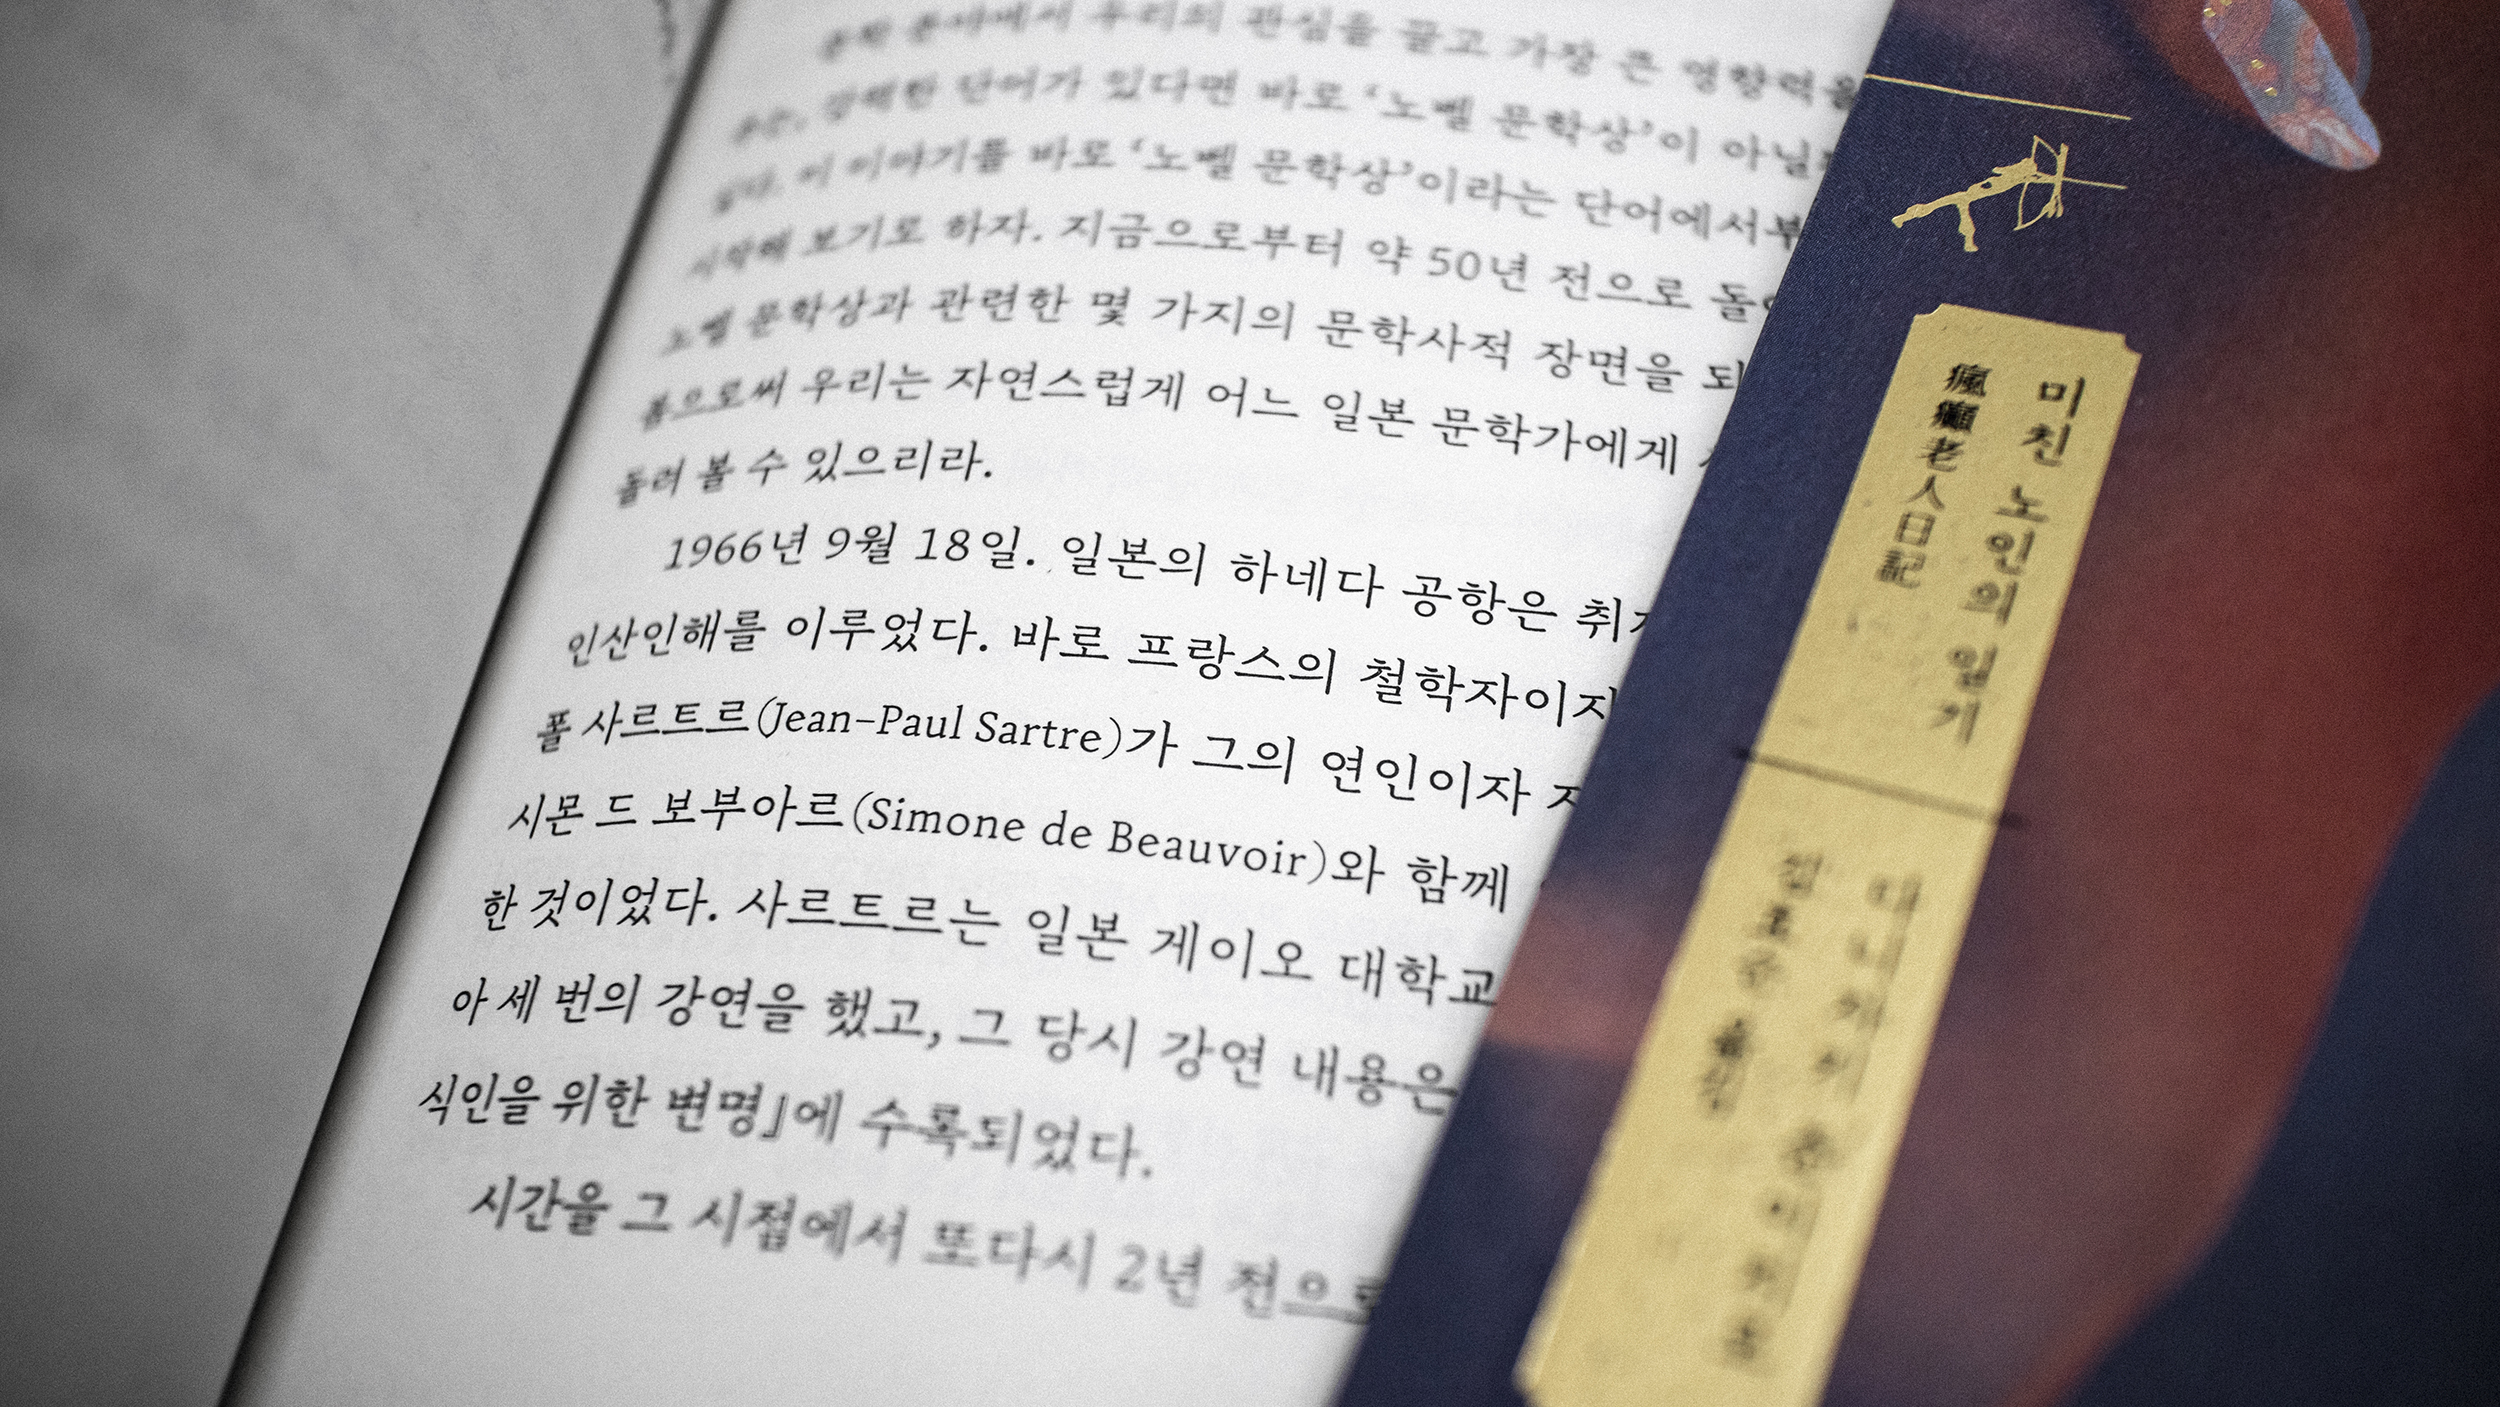 문학 분야에서 우리의 관심을 끌고 가장 큰 영향력을
주는, 강력한 단어가 있다면 바로 ‘노벨 문학상’이 아닐까
싶다. 이 이야기를 바로 ‘노벨 문학상’이라는 단어에서부
시작해 보기로 하자. 지금으로부터 약 50년 전으로
노벨 문학상과 관련한 몇 가지의 문학사적 장면을 되
봄으로써 우리는 자연스럽게 어느 일본 문학가에게
돌려 볼 수 있으리라.
1966년 9월 18일. 일본의 하네다 공항은
인산인해를 이루었다. 바로 프랑스의 철학자이자
폴 사르트르(Jean-Paul Sartre)가 그의 연인이자
시몬 드 보부아르(Simone de Beauvoir)와 함께
한 것이었다. 사르트르는 일본 게이오 대학교
아 세 번의 강연을 했고, 그 당시 강연 내용은
식인을 위한 변명」에 수록되었다.
시간을 그 시점에서 또다시 2년 전으로
미친 노인의 일기
瘋癲老人日記
다니자키 준이치로
김효순 옮김